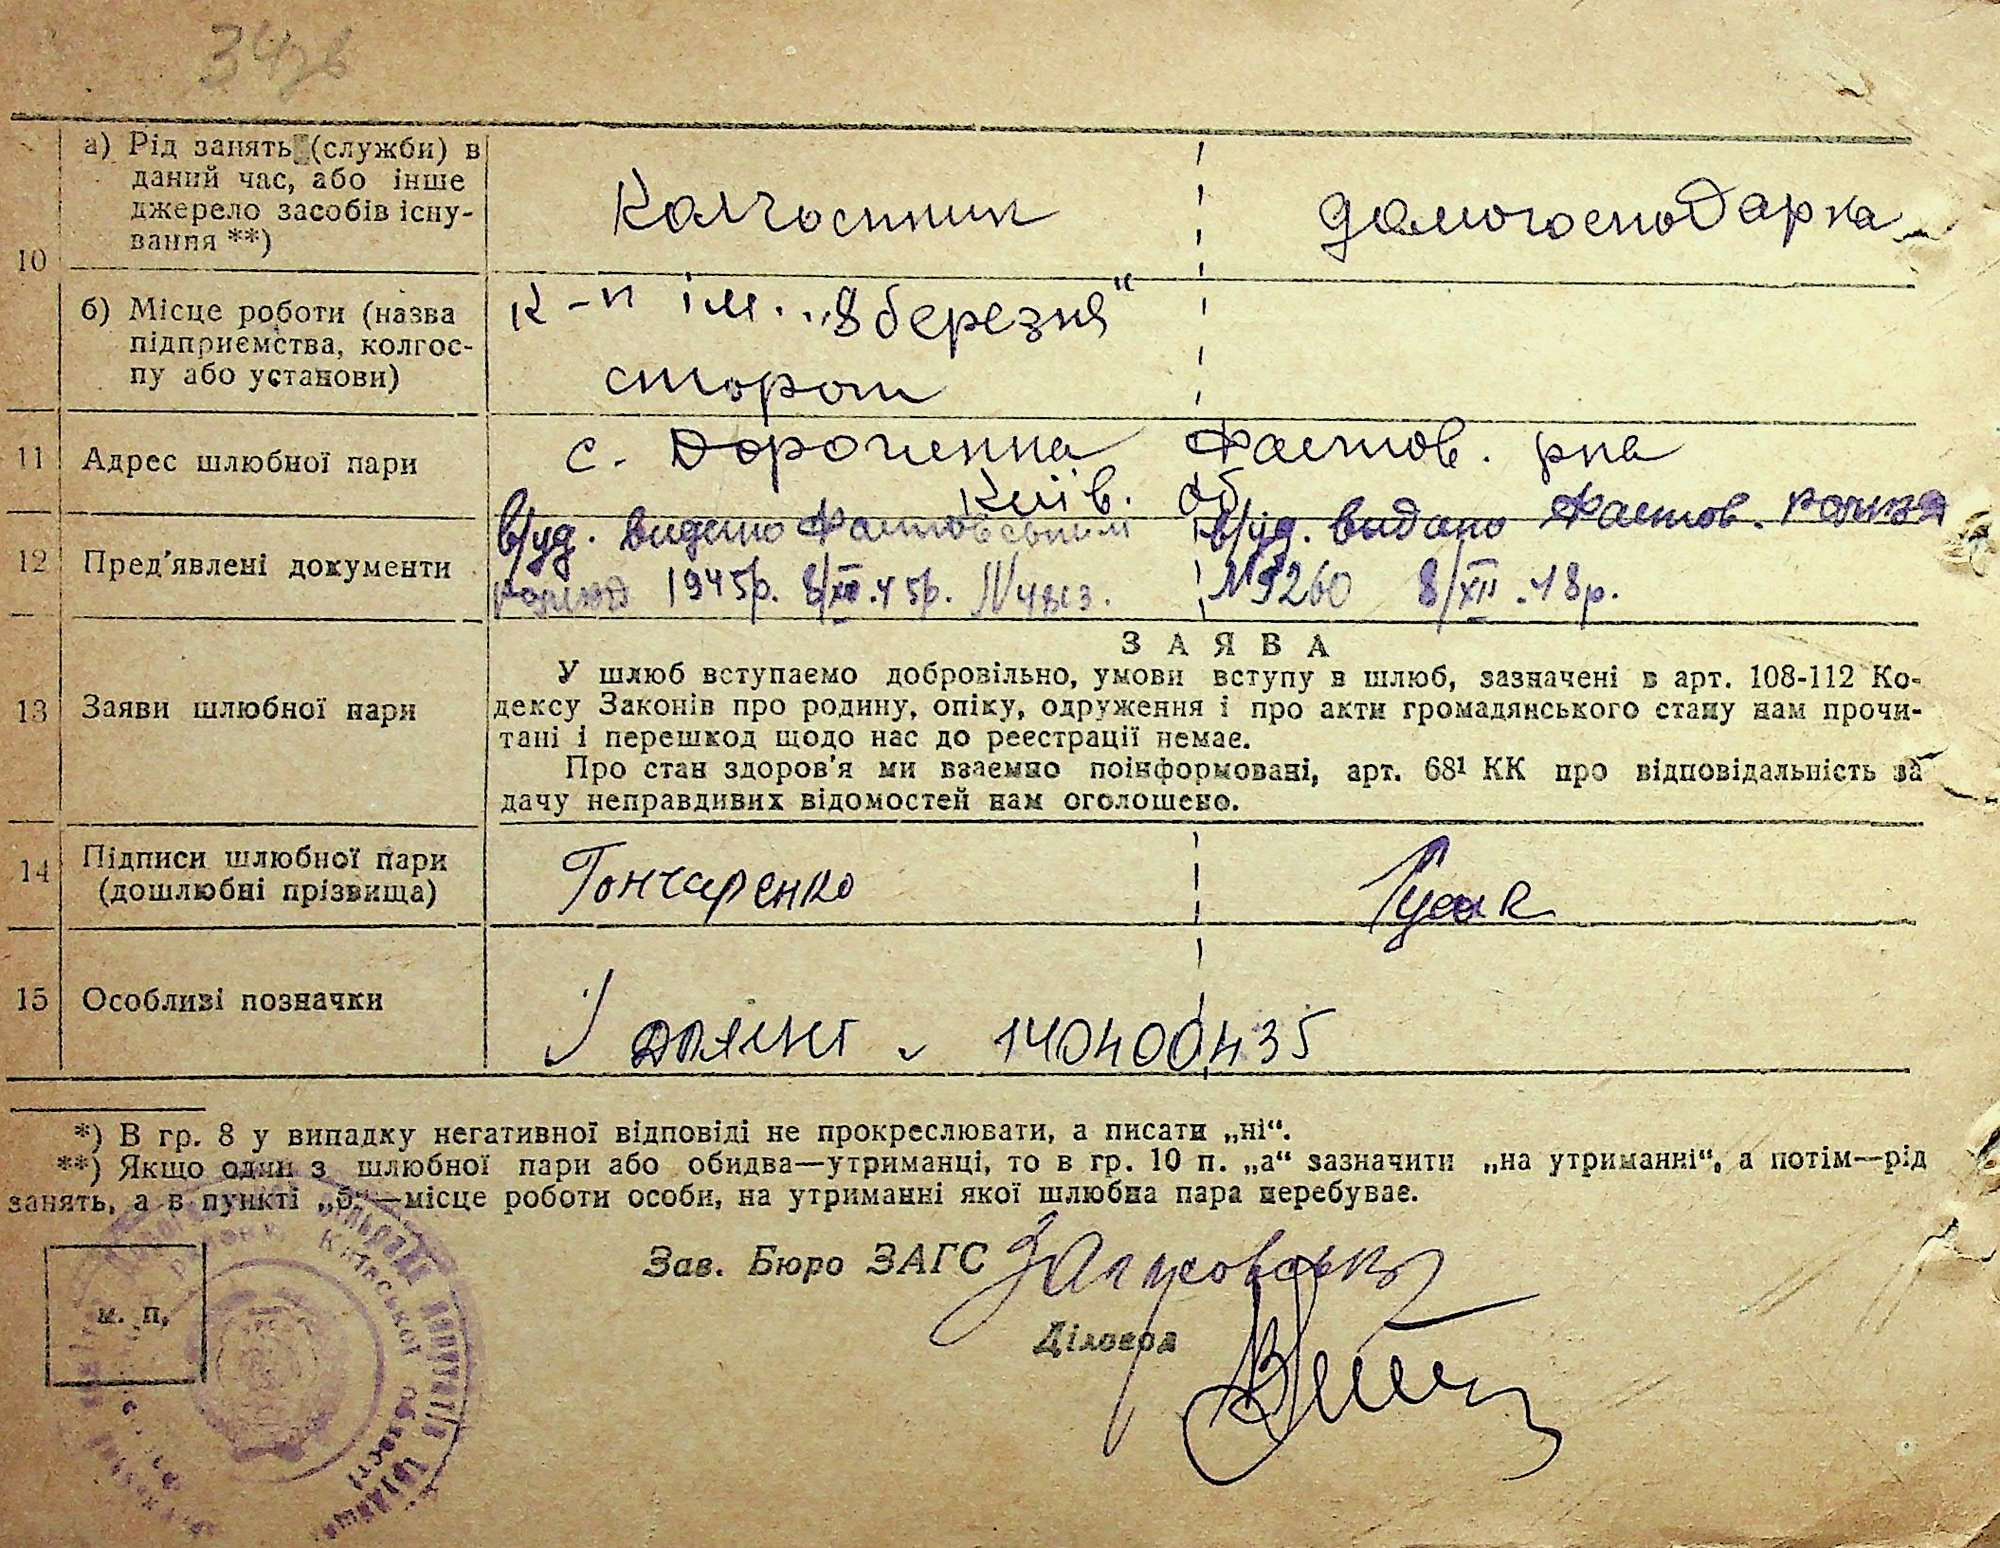 а) Рід занять (служби) в
даний час, або інше
джерело засобів існу-
вання **)
10
Колгоспник
домогосподарка
б) Місце роботи (назва
підприємства, колгос-
пу або установи)
к-п ім. „8 березня“
сторож
11 Адрес шлюбної пари
с. Дорогинка Фастов. рна
Київ. об
12 Пред'явлені документи
в/уд. видано Фастовським
1945р. 8/XII.45р.
в/уд. видано Фастов.
8/XII.48р.
13 Заяви шлюбної пари
ЗАЯВА
У шлюб вступаємо добровільно, умови вступу в шлюб, зазначені в арт. 108-112 Ко-
дексу Законів про родину, опіку, одруження і про акти громадянського стану нам прочи-
тані і перешкод щодо нас до реєстрації немає.
Про стан здоров'я ми взаємно поінформовані, арт. 68¹ КК про відповідальність за
дачу неправдивих відомостей нам оголошено.
14 Підписи шлюбної пари
(дошлюбні прізвища)
Гончаренко
15 Особливі позначки
140400435
*) В гр. 8 у випадку негативної відповіді не прокреслювати, а писати „ні“.
**) Якщо один з шлюбної пари або обидва—утриманці, то в гр. 10 п. „а“ зазначити „на утриманні“, а потім—рід
занять, а в пункті „б“—місце роботи особи, на утриманні якої шлюбна пара перебуває.
Зав. Бюро ЗАГС
Діловод
м. п.
Київської області
депутатів трудящих